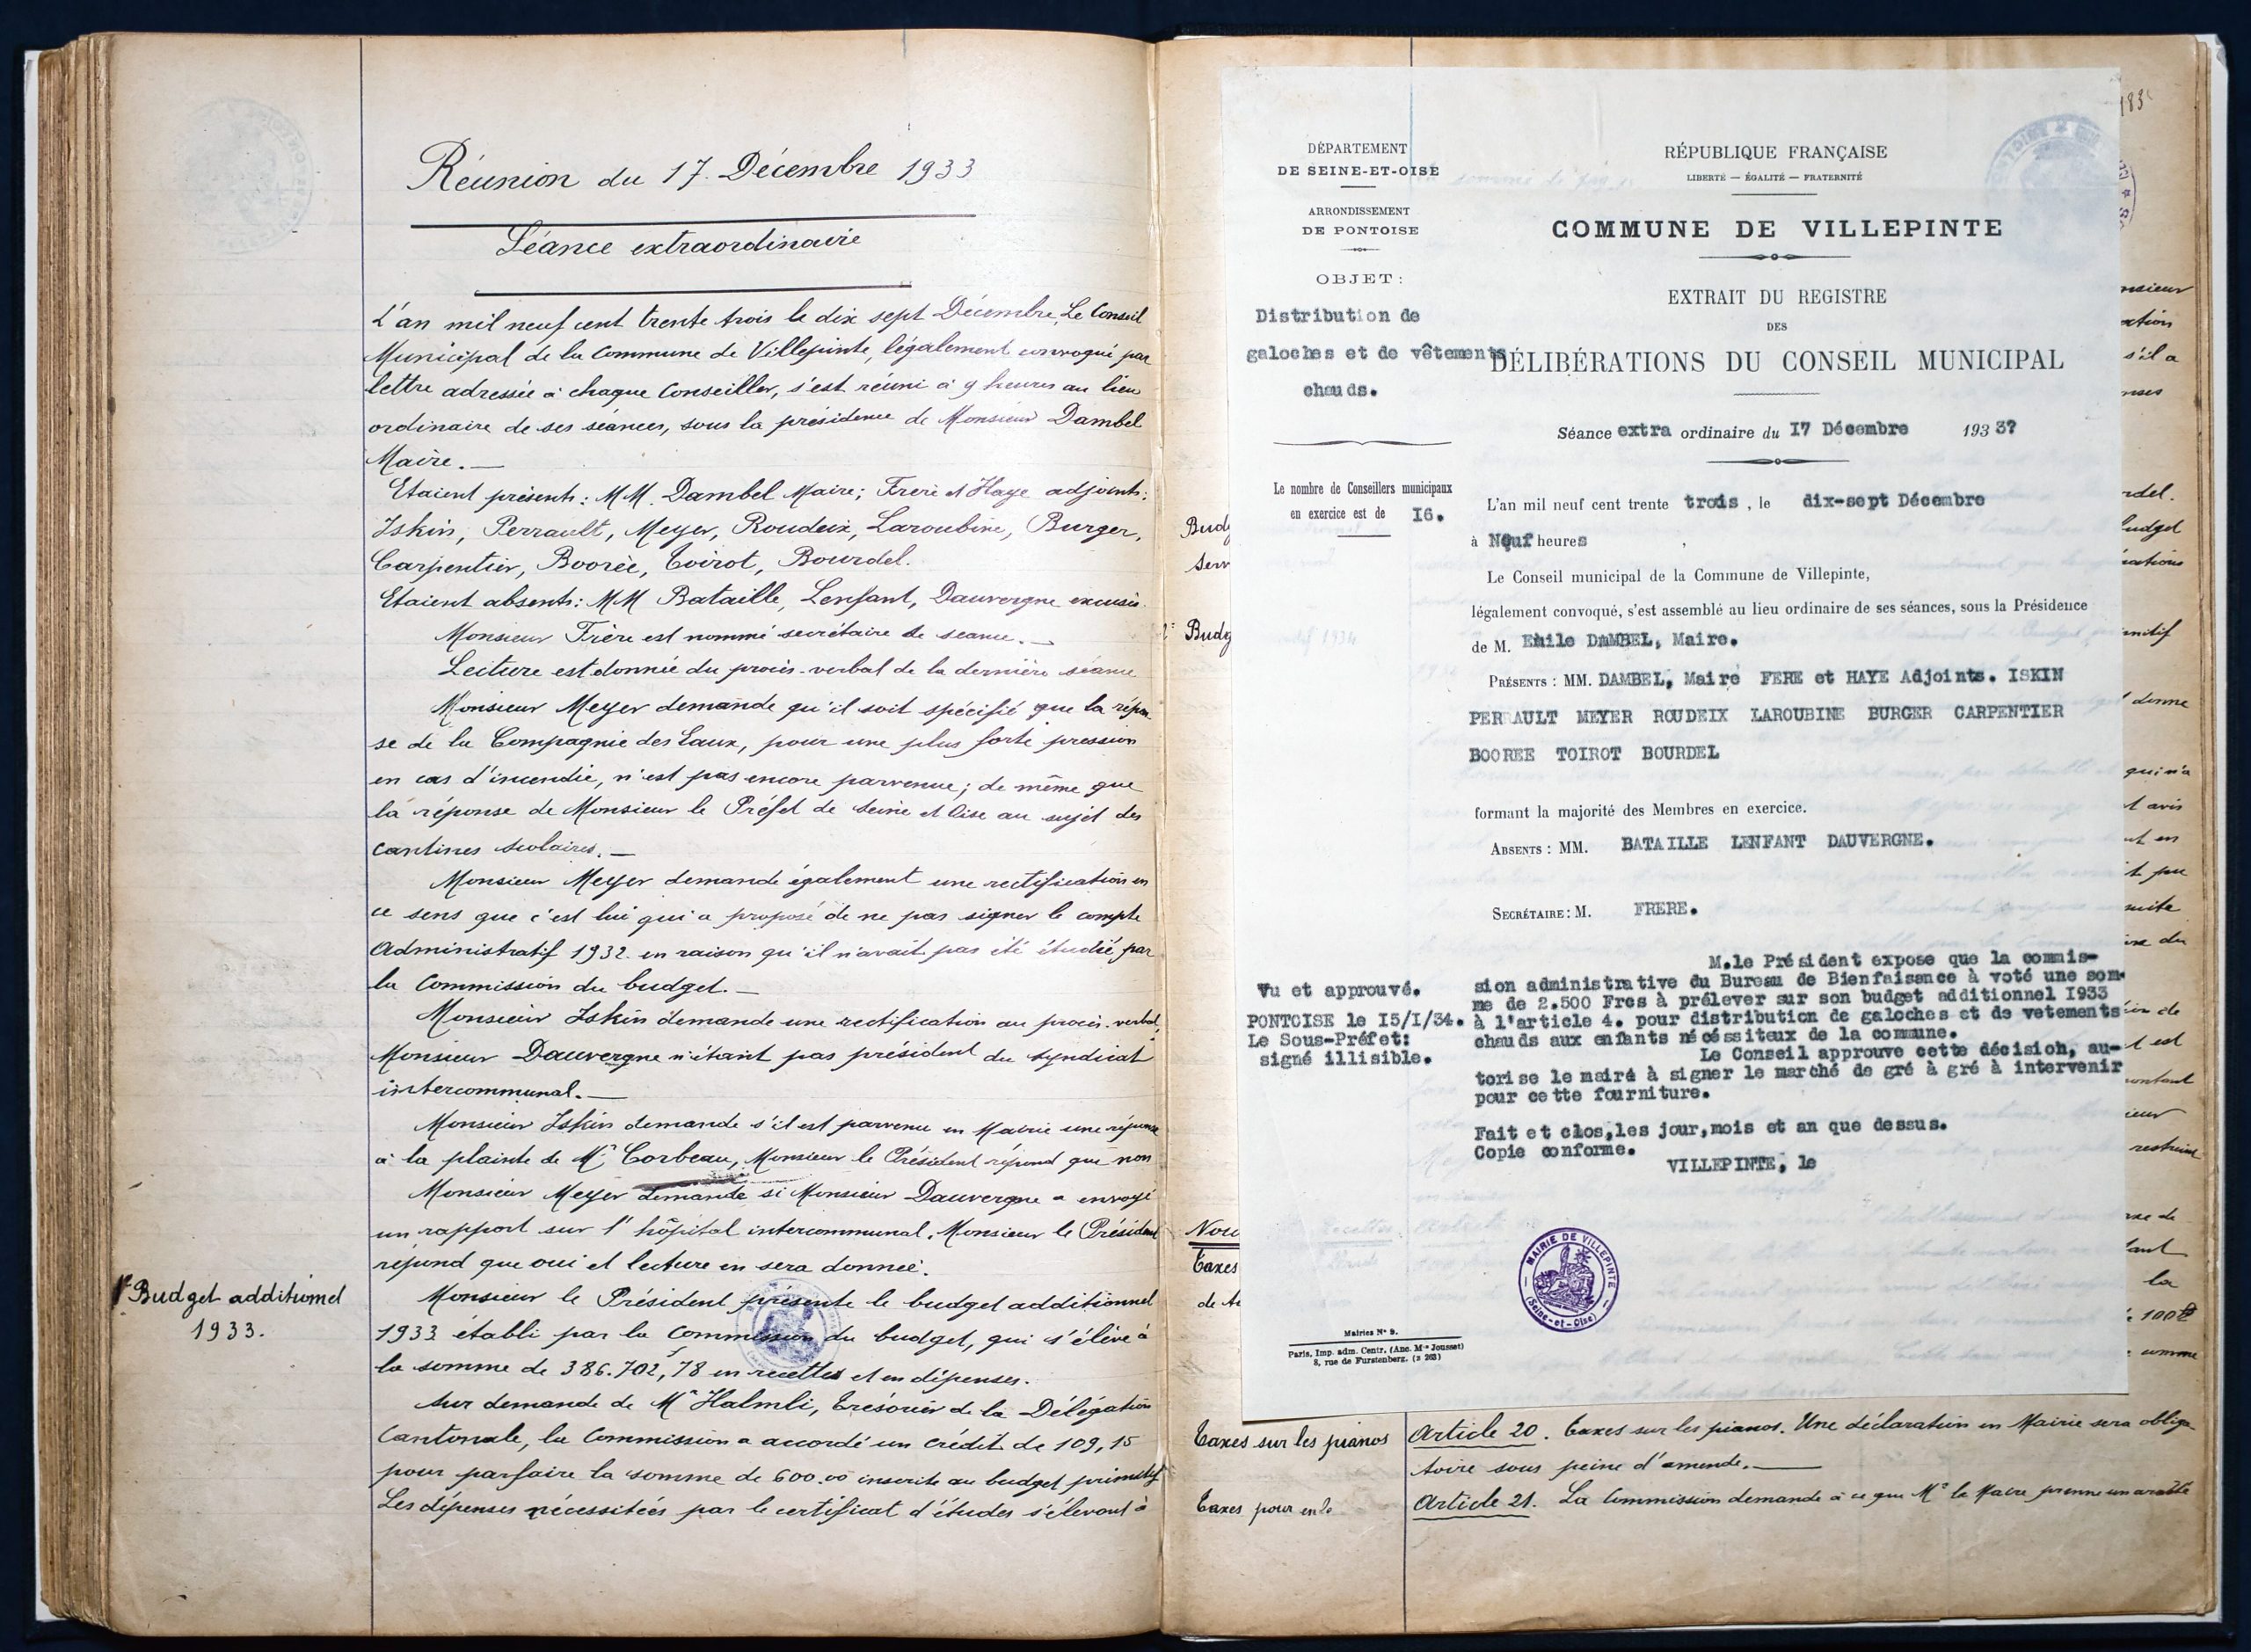 Réunion du 17 Décembre 1933
Séance extraordinaire
L'an mil neuf cent trente trois le dix sept Décembre, Le Conseil
Municipal de la Commune de Villepinte, légalement convoqué par
lettre adressée à chaque Conseiller, s'est réuni à 9 heures au lieu
ordinaire de ses séances, sous la présidence de Monsieur Dambel
Maire.—
Etaient présents: MM. Dambel Maire; Frere et Haye adjoints;
Iskin, Perrault, Meyer, Roudeix, Laroubine, Burger,
Carpentier, Boorée, Toirot, Bourdel.
Etaient absents: MM Bataille, Lenfant, Dauvergne excusés.
Monsieur Frère est nommé secrétaire de séance.—
Lecture est donnée du procès-verbal de la dernière séance
Monsieur Meyer demande qu'il soit spécifié que la répon
se de la Compagnie des Eaux, pour une plus forte pression
en cas d'incendie, n'est pas encore parvenue; de même que
la réponse de Monsieur le Préfet de Seine et Oise au sujet des
cantines scolaires.—
Monsieur Meyer demande également une rectification en
ce sens que c'est lui qui a proposé de ne pas signer le compte
Administratif 1932 en raison qu'il n'avait pas été étudié par
la Commission du budget.—
Monsieur Iskin demande une rectification au procès-verbal,
Monsieur Dauvergne n'étant pas président du Syndicat
intercommunal.—
Monsieur Iskin demande s'il est parvenu en Mairie une réponse
à la plainte de Mr Corbeau, Monsieur le Président répond que non
Monsieur Meyer demande si Monsieur Dauvergne a envoyé
un rapport sur l'hôpital intercommunal. Monsieur le Président
répond que oui et lecture en sera donnée.
1° Budget additionnel
1933.
Monsieur le Président présente le budget additionnel
1933 établi par la Commission du budget, qui s'élève à
la somme de 386.702f,78 en recettes et en dépenses.
Sur demande de Mr Halmli, Trésorier de la Délégation
Cantonale, la Commission a accordé un crédit de 109,15
pour parfaire la somme de 600.00 inscrite au budget primitif
Les dépenses nécessitées par le certificat d'études s'élevant à
DÉPARTEMENT
DE SEINE-ET-OISE
ARRONDISSEMENT
DE PONTOISE
OBJET :
Distribution de
galoches et de vêtements
chauds.
Le nombre de Conseillers municipaux
en exercice est de I6.
Vu et approuvé.
PONTOISE le I5/I/34.
Le Sous-Préfet:
signé illisible.
Mairies N° 9.
Paris, Imp. adm. Centr. (Anc. Mon Jousset)
8, rue de Furstenberg. (z 263)
RÉPUBLIQUE FRANÇAISE
LIBERTÉ — ÉGALITÉ — FRATERNITÉ
COMMUNE DE VILLEPINTE
EXTRAIT DU REGISTRE
DES
DÉLIBÉRATIONS DU CONSEIL MUNICIPAL
Séance extra ordinaire du I7 Décembre 193 3?
L'an mil neuf cent trente trois , le dix-sept Décembre
à Neuf heures
Le Conseil municipal de la Commune de Villepinte,
légalement convoqué, s'est assemblé au lieu ordinaire de ses séances, sous la Présidence
de M. Emile DAMBEL, Maire.
PRÉSENTS : MM. DAMBEL, Maire FERE et HAYE Adjoints. ISKIN
PERRAULT MEYER ROUDEIX LAROUBINE BURGER CARPENTIER
BOOREE TOIROT BOURDEL
formant la majorité des Membres en exercice.
ABSENTS : MM. BATAILLE LENFANT DAUVERGNE.
SECRÉTAIRE : M. FRERE.
M.le Président expose que la commis-
sion administrative du Bureau de Bienfaisance à voté une som-
me de 2.500 Frcs à prélever sur son budget additionnel I933
à l'article 4. pour distribution de galoches et de vetements
chauds aux enfants nécéssiteux de la commune.
Le Conseil approuve cette décision, au-
torise le maire à signer le marché de gré à gré à intervenir
pour cette fourniture.
Fait et clos,les jour,mois et an que dessus.
Copie conforme.
VILLEPINTE, le
MAIRIE DE VILLEPINTE
(Seine-et-Oise)
Taxes sur les pianos
Article 20. Taxes sur les pianos. Une déclaration en Mairie sera obliga
toire sous peine d'amende.—
Taxes pour
Article 21. La Commission demande à ce que Mr le Maire prenne un arrêté